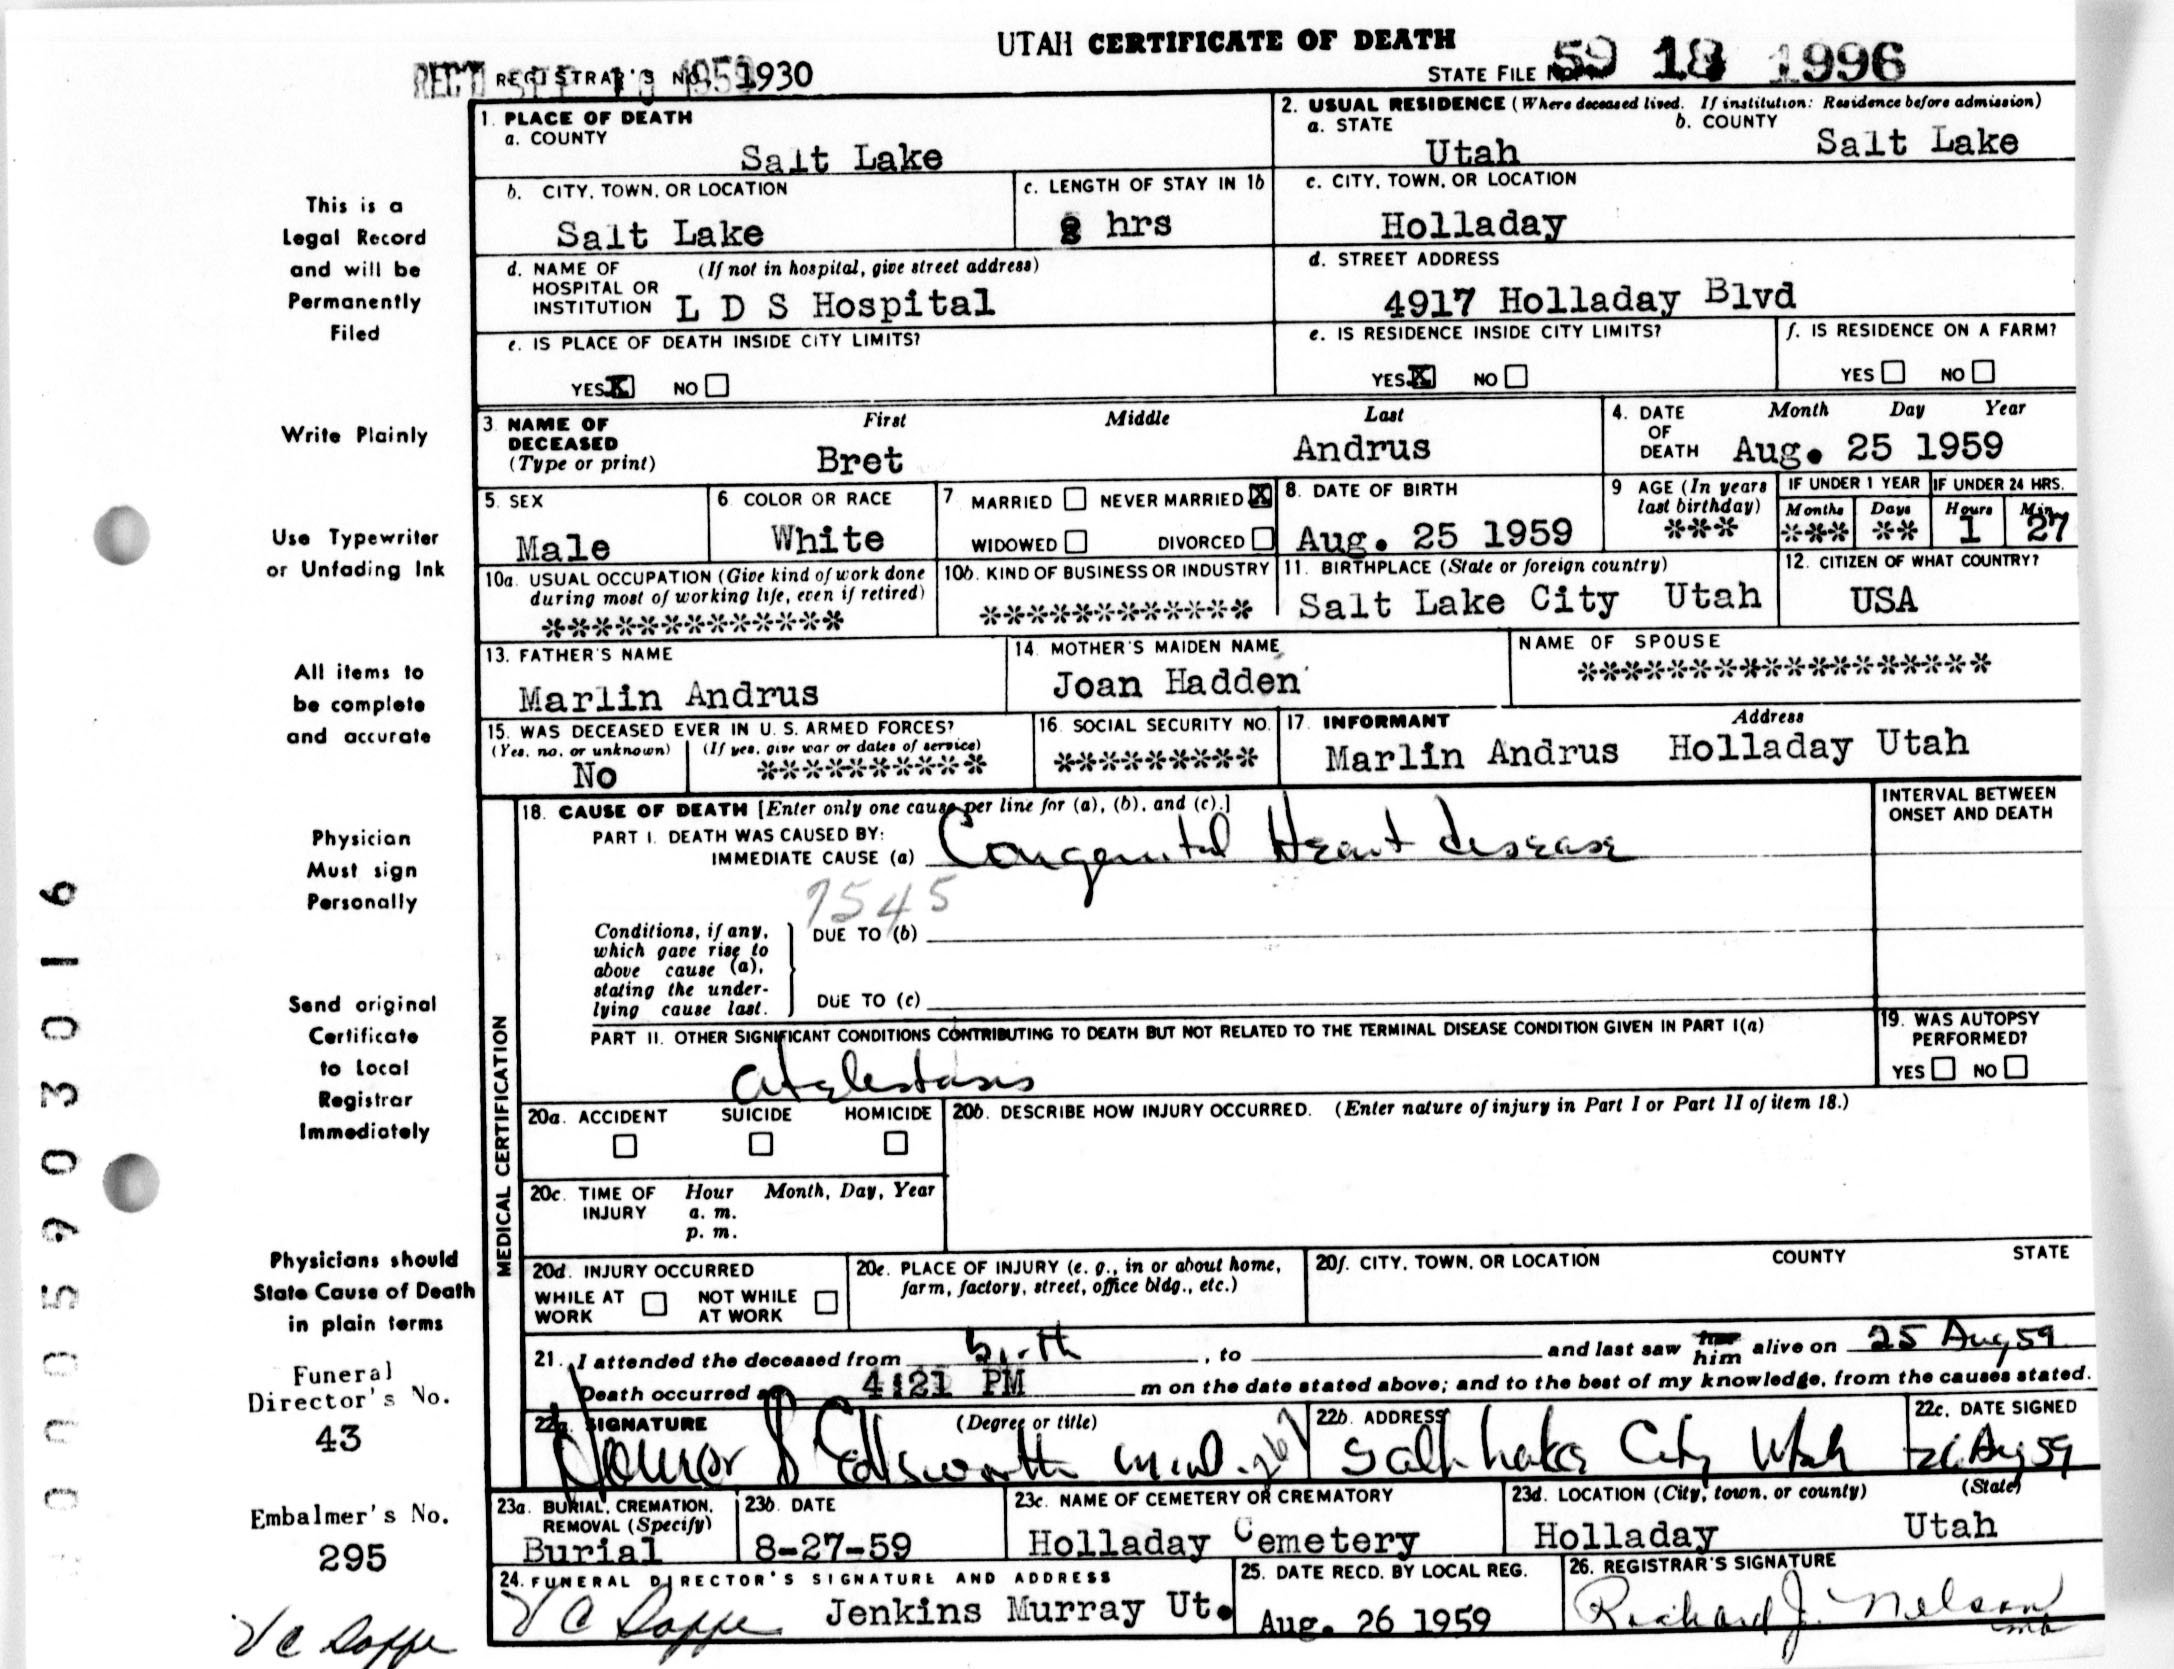 UTAH CERTIFICATE OF DEATH
REGISTRAR'S NO. 1930
STATE FILE NO. 59 18 1996
1. PLACE OF DEATH
a. COUNTY
Salt Lake
2. USUAL RESIDENCE (Where deceased lived. If institution: Residence before admission)
a. STATE
Utah
b. COUNTY
Salt Lake
b. CITY, TOWN, OR LOCATION
Salt Lake
c. LENGTH OF STAY IN 1b
hrs
c. CITY, TOWN, OR LOCATION
Holladay
d. NAME OF HOSPITAL OR INSTITUTION (If not in hospital, give street address)
L D S Hospital
d. STREET ADDRESS
4917 Holladay Blvd
e. IS PLACE OF DEATH INSIDE CITY LIMITS?
YES X NO
e. IS RESIDENCE INSIDE CITY LIMITS?
YES X NO
f. IS RESIDENCE ON A FARM?
YES NO
3. NAME OF DECEASED (Type or print)
First Middle Last
Bret Andrus
4. DATE OF DEATH
Month Day Year
Aug. 25 1959
5. SEX
Male
6. COLOR OR RACE
White
7. MARRIED NEVER MARRIED X
WIDOWED DIVORCED
8. DATE OF BIRTH
Aug. 25 1959
9. AGE (In years last birthday)
***
IF UNDER 1 YEAR
Months Days
*** **
IF UNDER 24 HRS.
Hours Min.
1 27
10a. USUAL OCCUPATION (Give kind of work done during most of working life, even if retired)
*************
10b. KIND OF BUSINESS OR INDUSTRY
************
11. BIRTHPLACE (State or foreign country)
Salt Lake City Utah
12. CITIZEN OF WHAT COUNTRY?
USA
13. FATHER'S NAME
Marlin Andrus
14. MOTHER'S MAIDEN NAME
Joan Hadden
NAME OF SPOUSE
******************
15. WAS DECEASED EVER IN U. S. ARMED FORCES?
(Yes, no, or unknown) (If yes, give war or dates of service)
No **********
16. SOCIAL SECURITY NO.
*********
17. INFORMANT Address
Marlin Andrus Holladay Utah
MEDICAL CERTIFICATION
18. CAUSE OF DEATH [Enter only one cause per line for (a), (b), and (c).]
PART I. DEATH WAS CAUSED BY:
IMMEDIATE CAUSE (a) Congenital Heart disease
7545
Conditions, if any, which gave rise to above cause (a), stating the underlying cause last.
DUE TO (b)
DUE TO (c)
INTERVAL BETWEEN ONSET AND DEATH
PART II. OTHER SIGNIFICANT CONDITIONS CONTRIBUTING TO DEATH BUT NOT RELATED TO THE TERMINAL DISEASE CONDITION GIVEN IN PART I(a)
atelectasis
19. WAS AUTOPSY PERFORMED?
YES NO
20a. ACCIDENT SUICIDE HOMICIDE
20b. DESCRIBE HOW INJURY OCCURRED. (Enter nature of injury in Part I or Part II of item 18.)
20c. TIME OF INJURY
Hour Month, Day, Year
a. m.
p. m.
20d. INJURY OCCURRED
WHILE AT WORK NOT WHILE AT WORK
20e. PLACE OF INJURY (e. g., in or about home, farm, factory, street, office bldg., etc.)
20f. CITY, TOWN, OR LOCATION COUNTY STATE
21. I attended the deceased from birth, to and last saw her him alive on 25 Aug 59
Death occurred at 4:21 PM m on the date stated above; and to the best of my knowledge, from the causes stated.
22a. SIGNATURE (Degree or title)
Homer S Ellsworth M.D.
22b. ADDRESS
Salt Lake City Utah
22c. DATE SIGNED
26 Aug 59
23a. BURIAL, CREMATION, REMOVAL (Specify)
Burial
23b. DATE
8-27-59
23c. NAME OF CEMETERY OR CREMATORY
Holladay Cemetery
23d. LOCATION (City, town, or county) (State)
Holladay Utah
24. FUNERAL DIRECTOR'S SIGNATURE AND ADDRESS
Jenkins Murray Ut.
25. DATE RECD. BY LOCAL REG.
Aug. 26 1959
26. REGISTRAR'S SIGNATURE
Richard J. Nelson
This is a
Legal Record
and will be
Permanently
Filed
Write Plainly
Use Typewriter
or Unfading Ink
All items to
be complete
and accurate
Physician
Must sign
Personally
Send original
Certificate
to Local
Registrar
Immediately
Physicians should
State Cause of Death
in plain terms
Funeral
Director's No.
43
Embalmer's No.
295